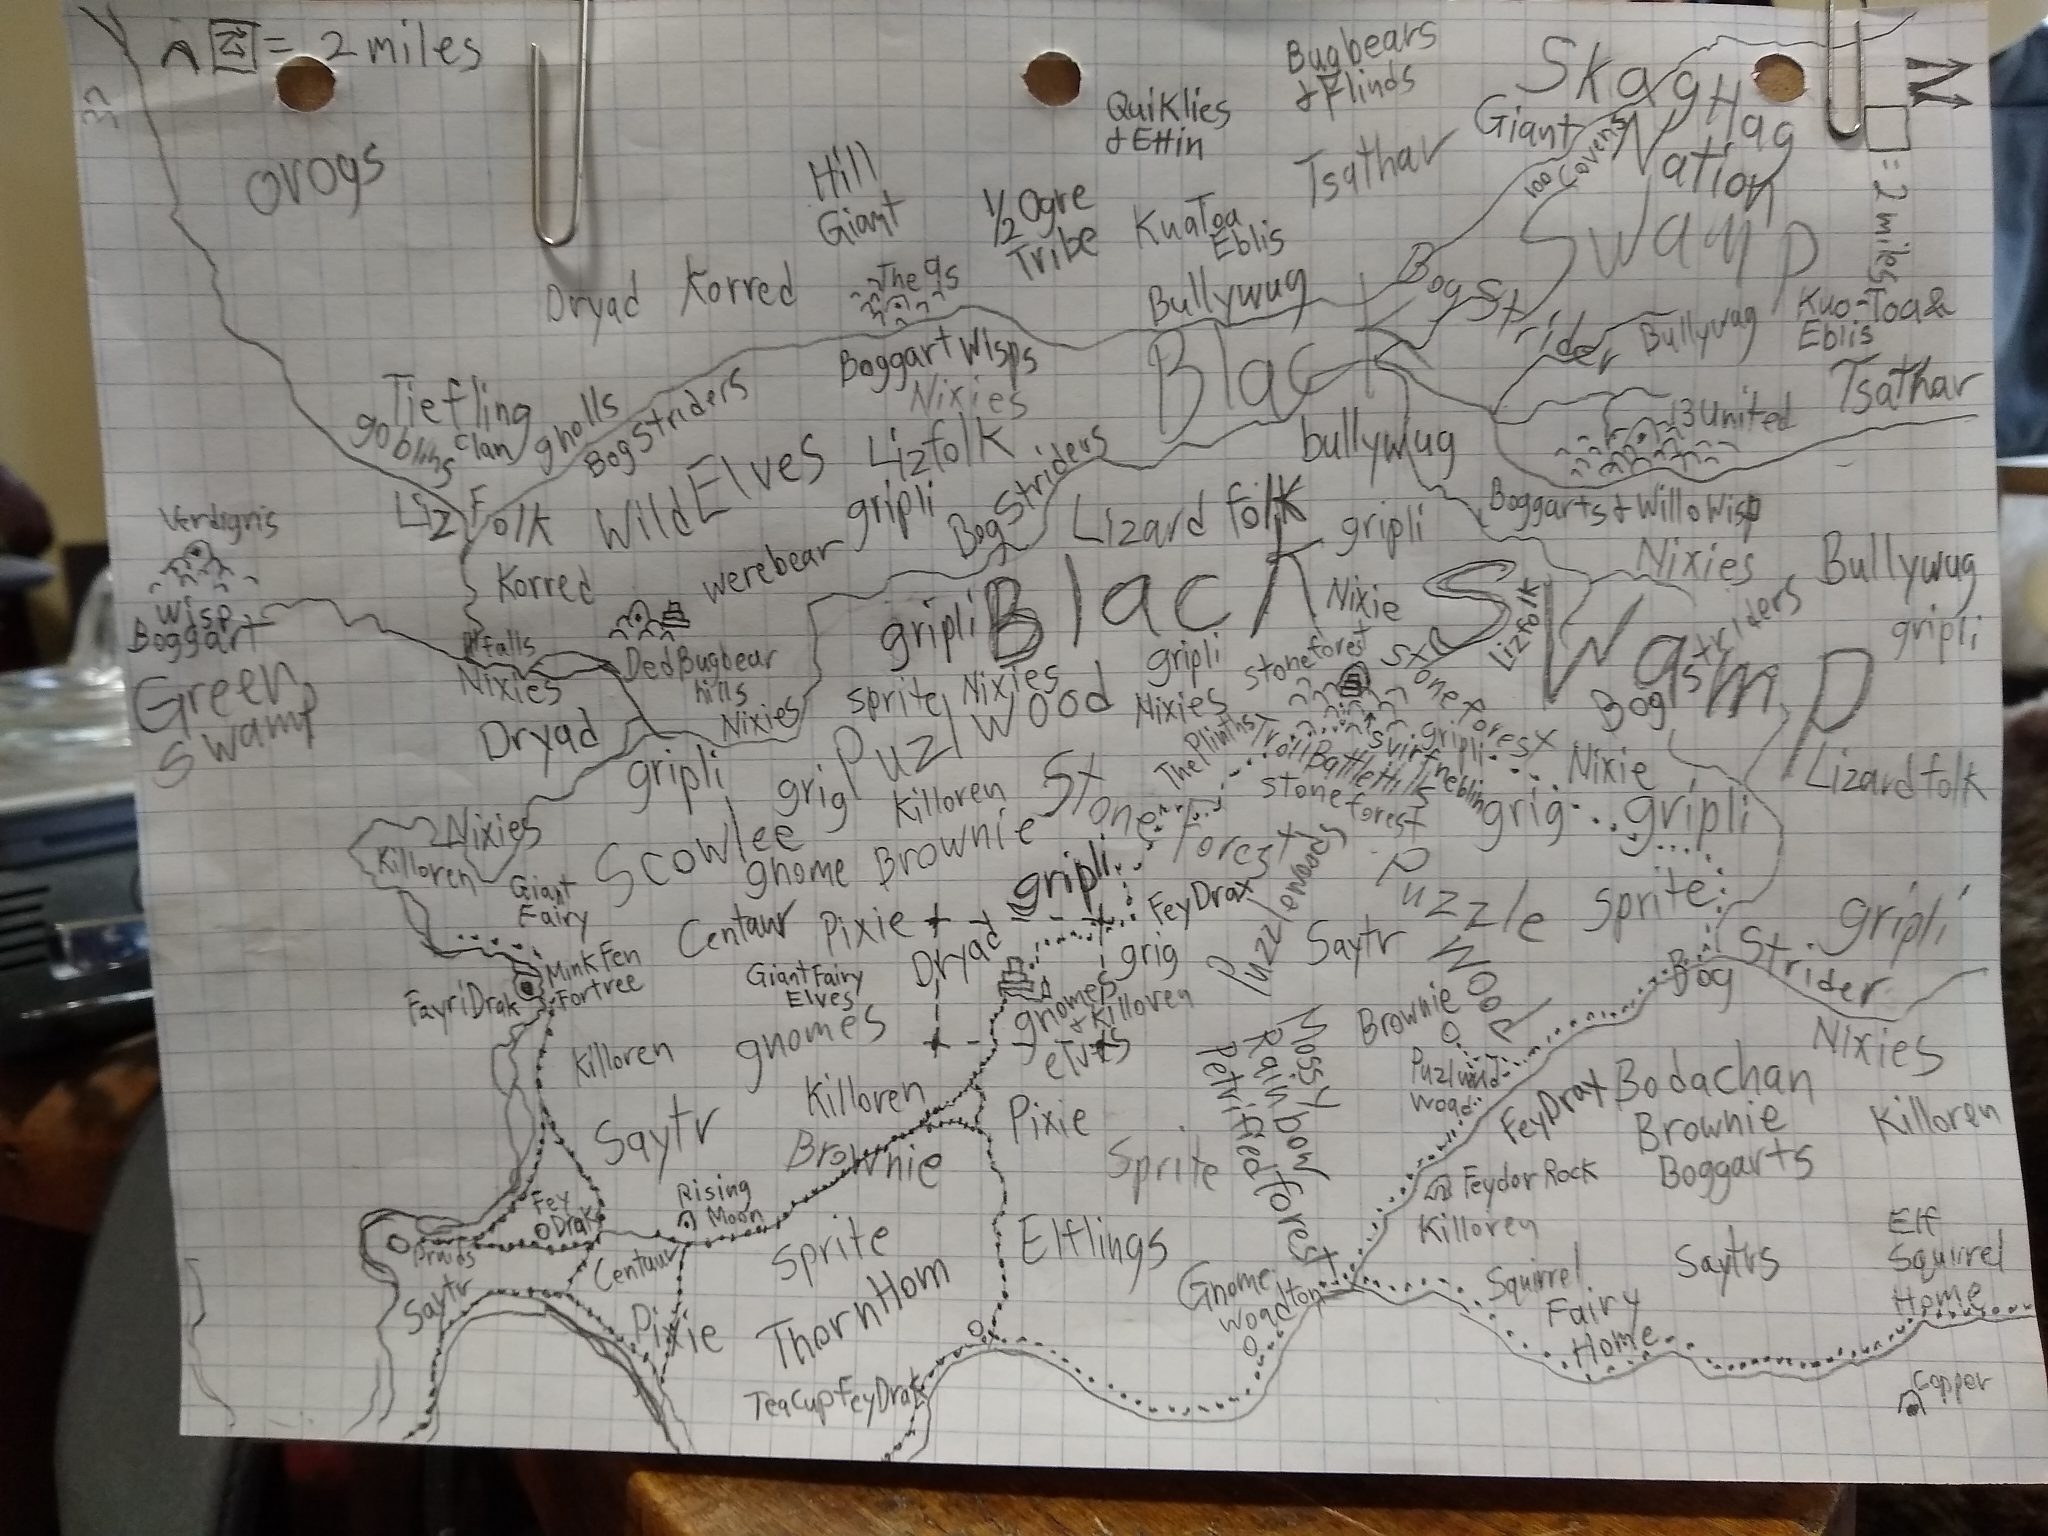 N = 2 miles
Orogs
Hill
Giant
Quiklies
& Ettin
Bugbears
& Flinds
Skag Hag
Nation
Giant
100 Covens
Swamp
N
= 2 miles
Tsathar
1/2 Ogre
Tribe
KuaToa
Eblis
Dryad
Korred
The 9s
Bullywug
Bog Strider
Bullywag
Kuo-Toa &
Eblis
Tsathar
13 United
Boggart Wisps
Nixies
Black
Tiefling
Clan
goblins
gnolls
BogStriders
Lizfolk
Wild Elves
Lizfolk
gripli
Bog Striders
bullywug
Lizard folk
gripli
Boggarts & Willo Wisp
Nixies
Bullywug
gripli
Verdigris
Wisp
Boggart
Green
Swamp
Korred
werebear
falls
Nixies
DedBugbear
hills
Dryad
Nixies
gripli
Black Swamp
Nixie
Lizfolk
Bog striders
gripli
Nixies
sprite
Nixies
Puzl Wood
stone forest
stone forest
The Plinths
Troll Battle Hills
svirfnebling
gripli
stone forest
Nixie
Lizardfolk
gripli
grig
Killoren
Stone forest
grig
gripli
Nixies
Killoren
Scowlee
gnome
Brownie
gripli
Giant
Fairy
Centaur
Pixie
Dryad
FeyDrax
grig
Puzzlewoods
Saytr
Puzzle Wood
Sprite
gripli
Bog Strider
Nixies
MinkFen
Fortree
FayriDrak
GiantFairy
Elves
gnomes
& Killoren
elves
Killoren
gnomes
Mossy
Rainbow
Petrified
forest
Brownie
Puzlwud
Woad
FeyDrax
Bodachan
Brownie
Boggarts
Killoren
Saytr
Killoren
Brownie
Pixie
Sprite
Feydor Rock
Killoren
Rising
Moon
Fey
Drak
Saytr
Centaur
Pixie
Sprite
ThornHom
Elflings
Gnome
Woadton
Squirrel
Fairy
Home
Saytrs
Elf
Squirrel
Home
TeacupFeyDrak
Copper